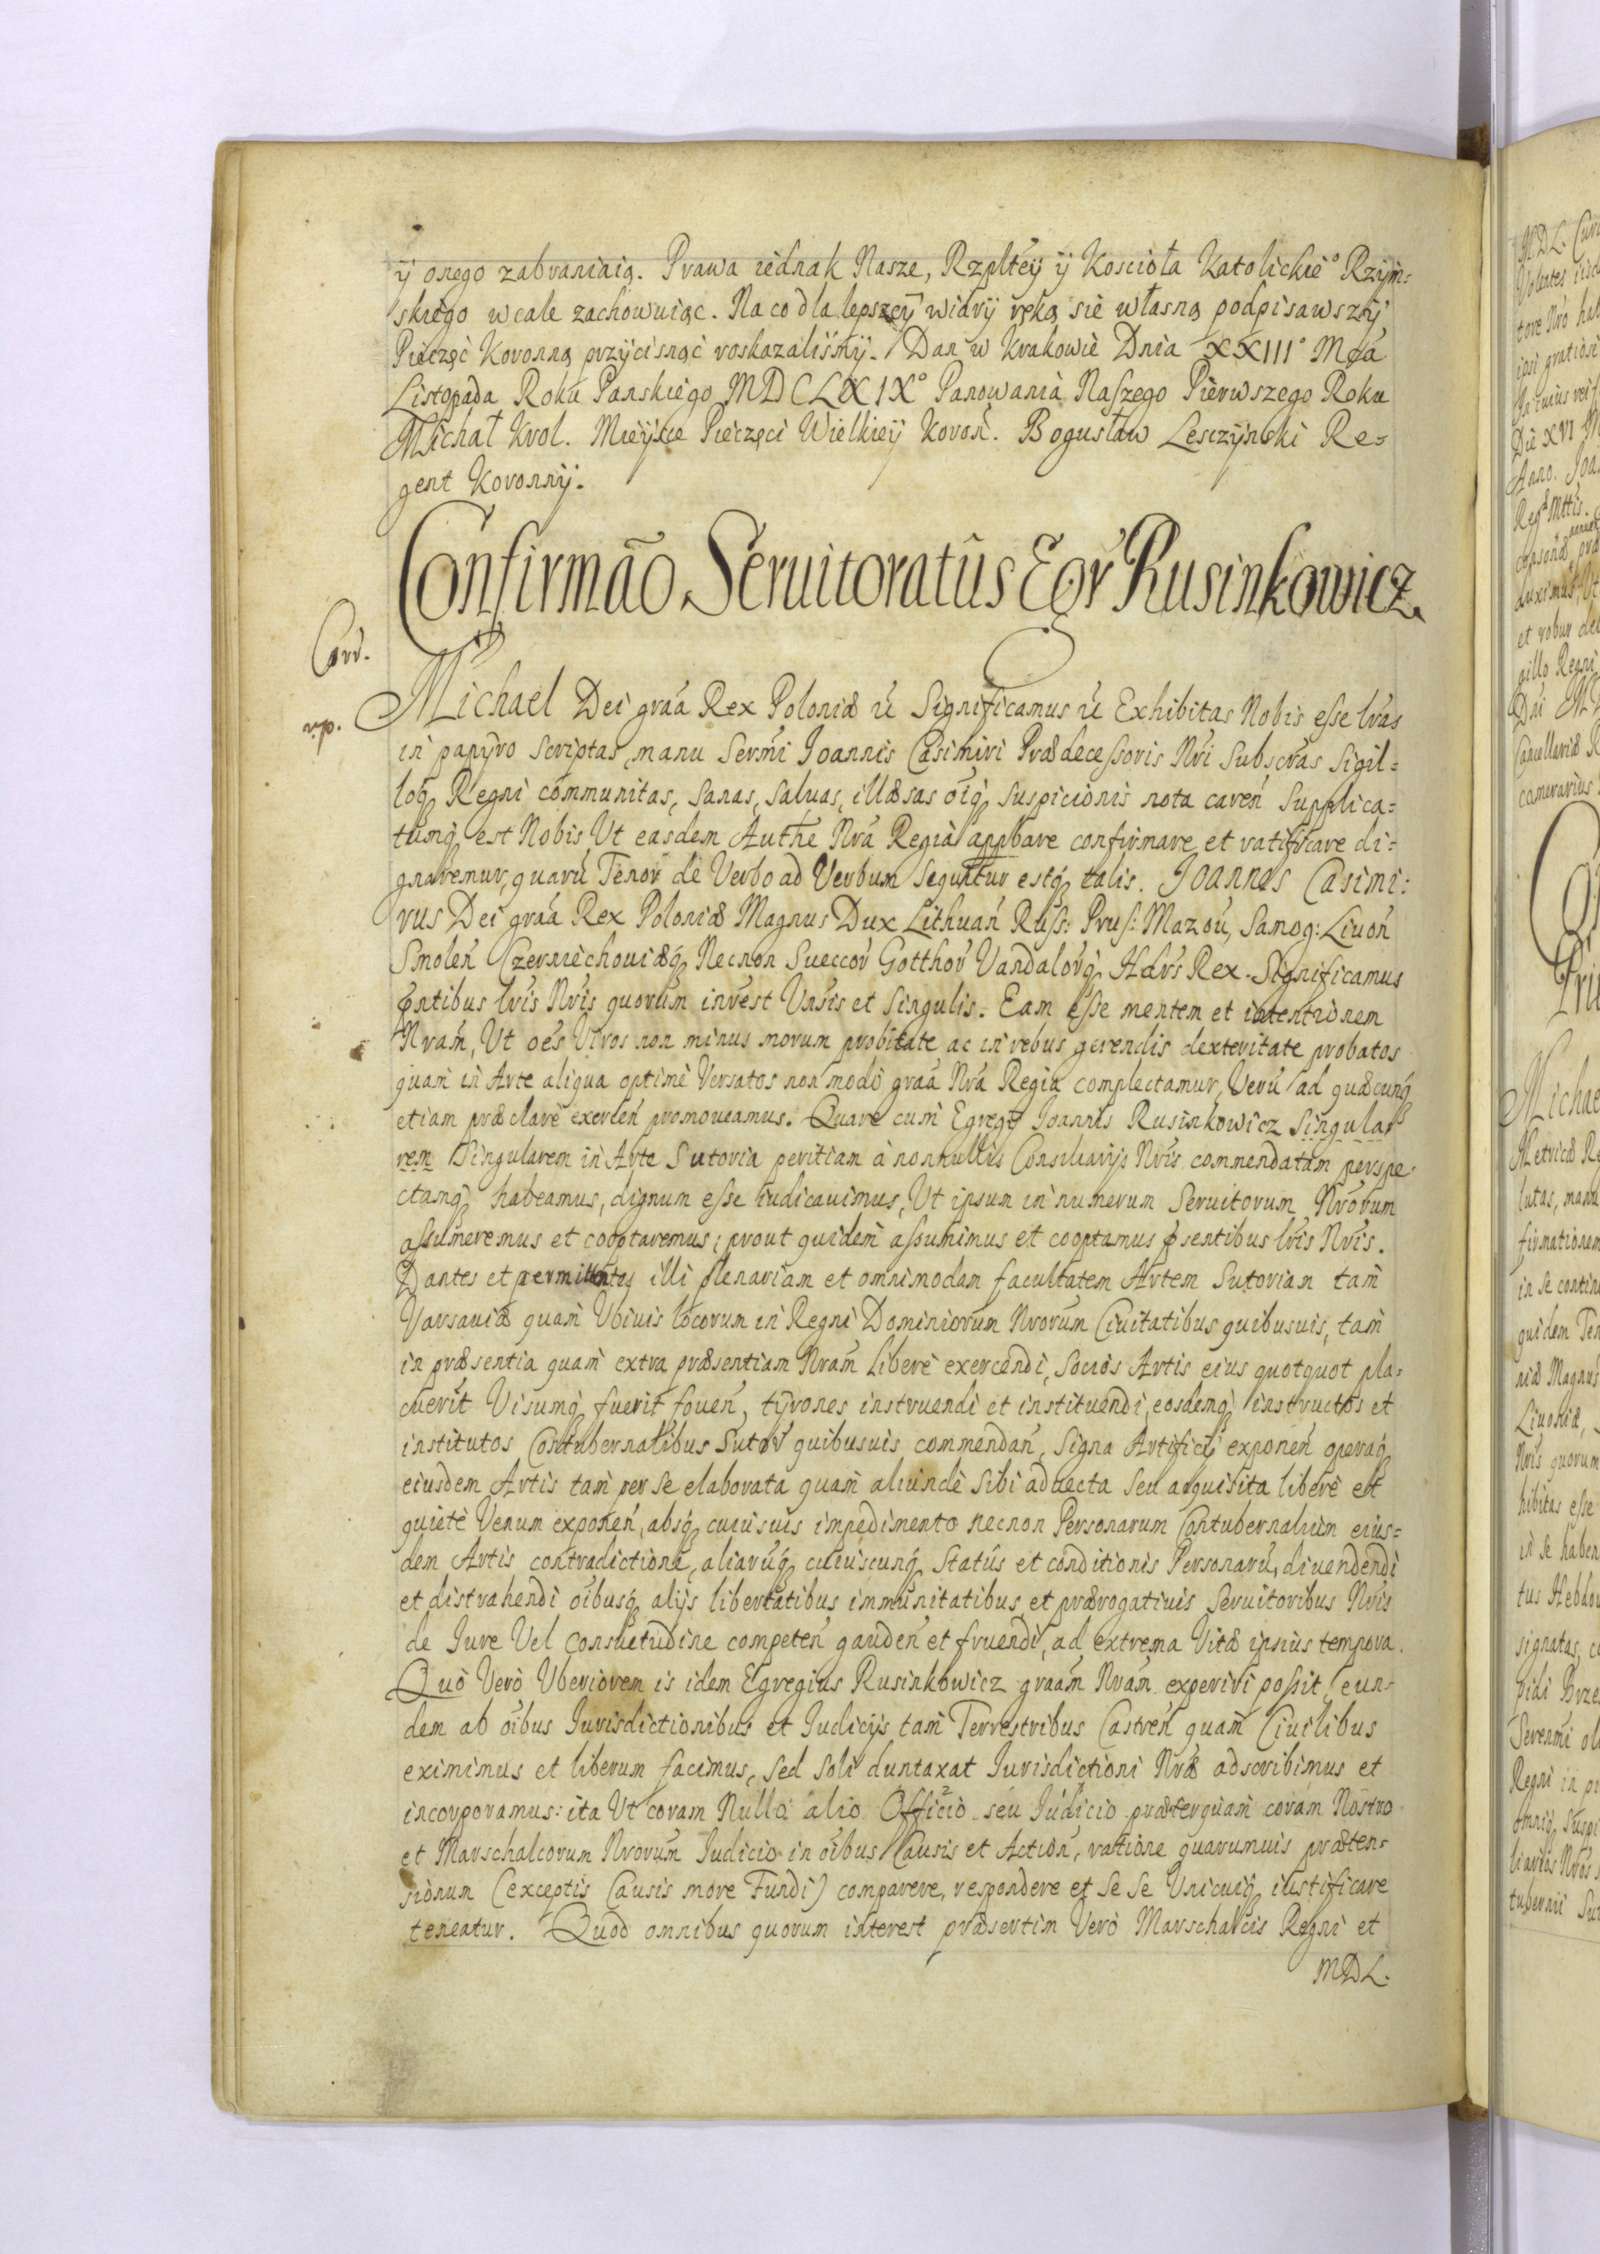 ÿ onego zabraniaią. Prawa iednak Nasze, Rzpltey ÿ Kosciołа Katolickie° Rzÿm:
skiego wcale zachowuiąc. Na co dla lepszeÿ wiarÿ ręką się własną podpisawszÿ
Pieczęć Koronną przÿcisnąć roskazalismÿ. Dan w Krakowie Dnia XXIII° Mca
Listopada Roku Panskiego MDCLXIX° Panowania Naszego Pierwszego Roku
Michał Krol. Mieÿsce Pieczęci Wielkieÿ Koroń. Bogusław Lesczÿnski Re-
gent Koronnÿ.
Confirmão Seruitoratûs Egr Rusinkowicz
Corr.
Michael Dei graá Rex Poloniæ ũ Significamus ũ Exhibitas Nobis esse lras
r.p.
in papÿro scriptas manu Sermi Ioannis Casimiri Prædecessoris Nri Subscras Sigil-
loq Regni communitas, sanas, saluas, illæsas oiq suspicionis nota careń Supplica-
tumq est Nobis Ut easdem Authe Nrá Regia appbare confirmare et ratificare di-
gnaremur, quarũ Tenor de Verbo ad Verbum Sequitur estq talis. Joannes Casimi:
rus Dei graá Rex Poloniæ Magnus Dux Lithuań Russ: Prus: Mazoú, Samog: Liuoń
Smoleń Czerniechouiæq Necnon Suecor Gotthor Vandalorq Hærs Rex. Significamus
pntibus lris Nris quorum inrest Unsis et Singulis. Eam esse mentem et intentionem
Nram, Ut oes Viros non minus morum probitate ac in rebus gerendis dexteritate probatos
quam in Arte aliqua optimè Versatos non modo graá Nrá Regia complectamur, Verũ ad quæcunq
etiam præclarè exerceń promoueamus. Quare cum Egregÿ Joannis Rusinkowicz Singular
rem Singularem in Arte Sutoria peritiam à nonnullis Consiliarÿs Nris commendatam perspe-
ctamq habeamus, dignum esse iudicauimus, Ut ipsum in numerum Seruitorum Nrorum
assumeremus et cooptaremus; prout quidem assumimus et cooptamus psentibus lris Nris.
Dantes et permittentes illi plenariam et omnimodam facultatem Artem Sutoriam tam
Varsauiæ quam Ubiuis locorum in Regni Dominiorum Nrorum Ciuitatibus quibusuis, tam
in præsentia quam extra præsentiam Nram liberè exercendi, Socios Artis eius quotquot pla-
cuerit Visumq fuerit foueń, tÿrones instruendi et instituendi, eosdemq instructos et
institutos Contubernalibus Sutor quibusuis commendań, Signa Artificÿ exponeń operaq
eiusdem Artis tam per se elaborata quam aliundè Sibi aduecta seu acquisita liberè et
quietè Venum exponeń, absq cuiusuis impedimento necnon Personarum Contubernalium eius-
dem Artis contradictione, aliarũq cuiuscunq Statûs et conditionis Personarũ, diuendendi
et distrahendi oibusq alÿs libertatibus immunitatibus et prærogatiuis Seruitoribus Nris
de Jure Vel Consuetudine competeń gaudeń et fruendi, ad extrema Vitæ ipsius tempora.
Quò Verò Vberiorem is idem Egregius Rusinkowicz graám Nrám experiri possit, eun-
dem ab oibus Iurisdictionibus et Iudicÿs tam Terrestribus Castreń quam Ciuilibus
eximimus et liberum facimus, sed soli duntaxat Jurisdictioni Nræ adscribimus et
incorporamus: ita Ut coram Nullo alio Officio seu Iudicio præterquam coram Nostro
et Marschalcorum Nrorum Judicio in oibus Causis et Actioń, ratione quarumuis præten-
sionum (exceptis Causis more Fundi) comparere, respondere et se se Unicuiq iustificare
teneatur. Quod omnibus quorum interest præsertim Verò Marschalcis Regni et
MDL.